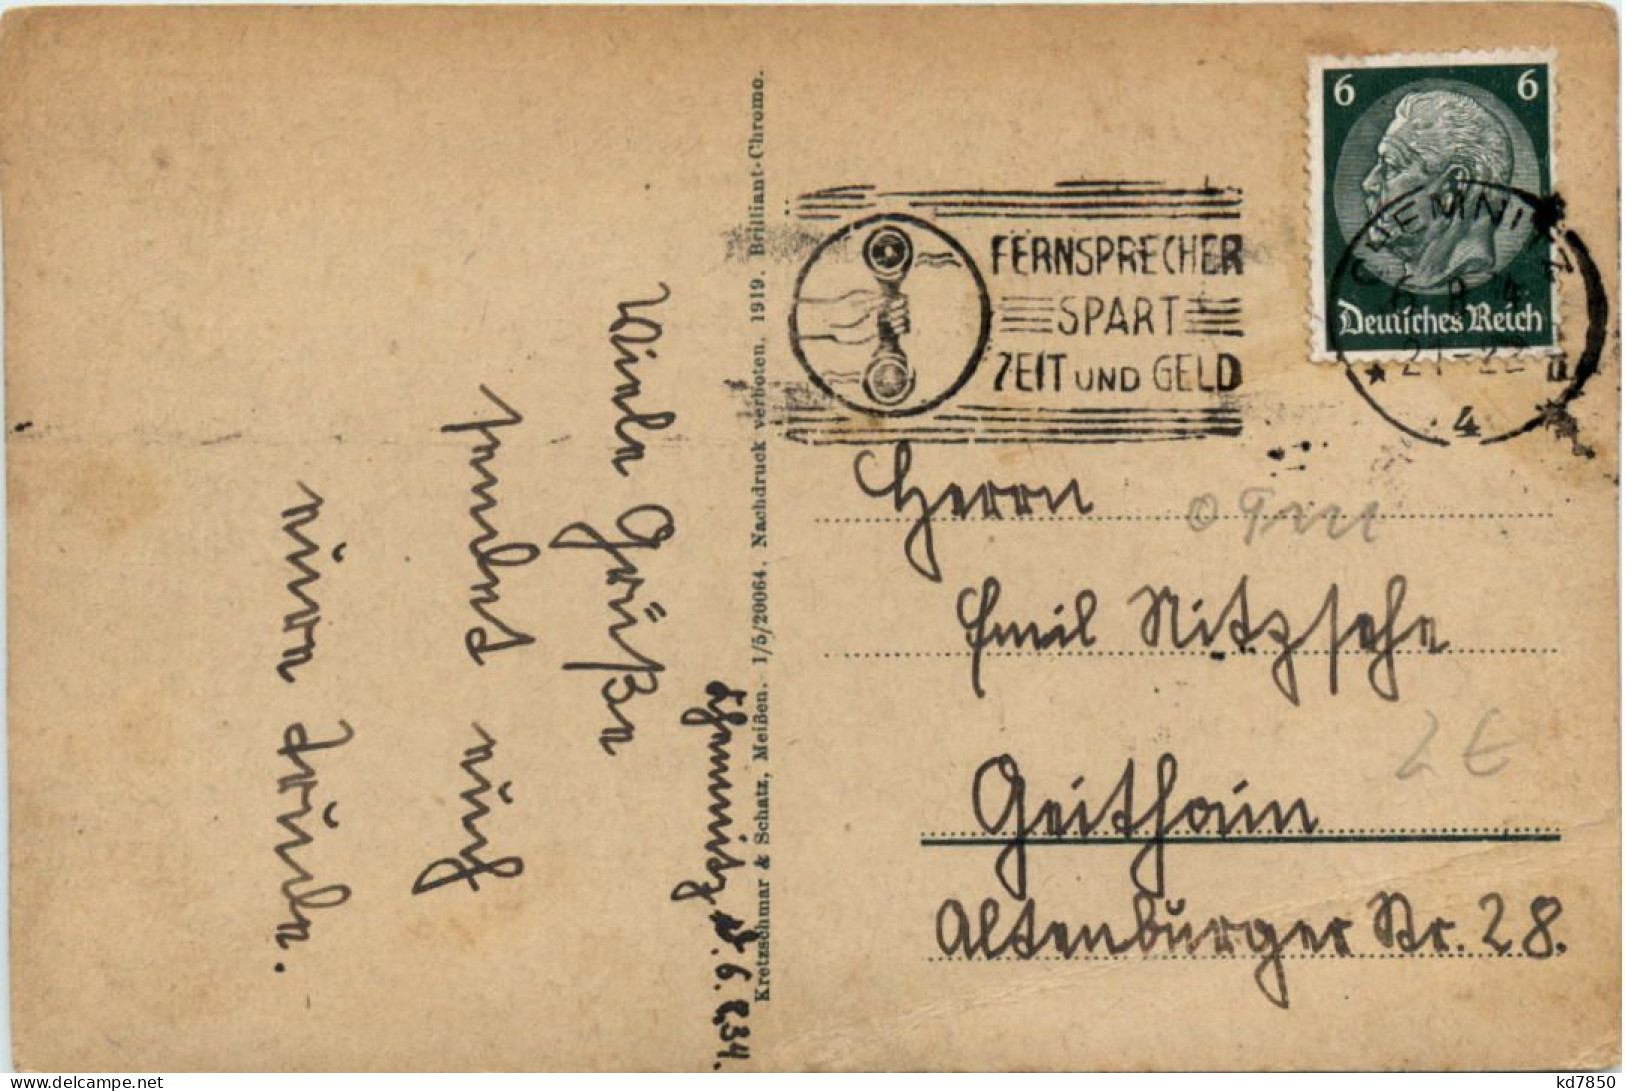 Chemnitz, d. 6.8.34.
Viele Grüße
sendet
auch
eure
Kretzschmar & Schatz, Meißen. 1/5/20064. Nachdruck verboten. 1919. Brilliant-Chromo.
FERNSPRECHER
SPART
ZEIT UND GELD
6 6
Deutsches Reich
CHEMNITZ
6.8.34
21-22
4
Herrn
Emil Nitzsche
Geithain
Altenburger Str. 28.
2 €
kd7850